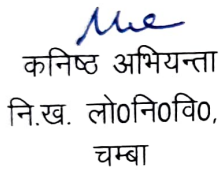 कनिष्ठ अभियन्ता
नि.ख. लो0नि0वि0,
चम्बा